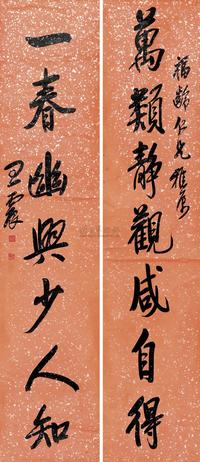 福齡仁兄雅屬
萬類靜觀咸自得
一春幽興少人知
王震